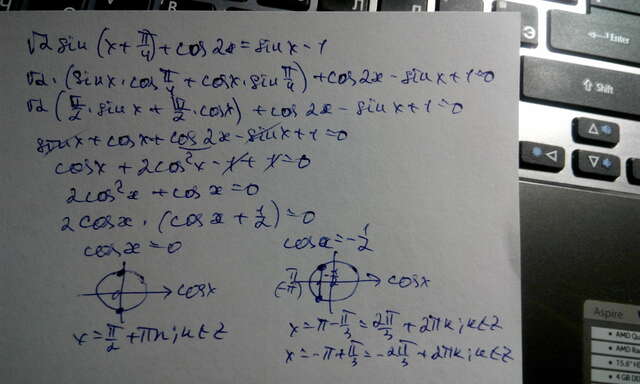 √2 sin (x + π/4) + cos 2x = sin x - 1
√2 · (sin x · cos π/4 + cos x · sin π/4) + cos 2x - sin x + 1 = 0
√2 (√2/2 · sin x + √2/2 · cos x) + cos 2x - sin x + 1 = 0
sin x + cos x + cos 2x - sin x + 1 = 0
cos x + 2cos²x - 1 + 1 = 0
2cos²x + cos x = 0
2cos x · (cos x + 1/2) = 0
cos x = 0 cos x = -1/2
cos x
cos x
x = π/2 + πn; n ∈ Z
x = π - π/3 = 2π/3 + 2πk; k ∈ Z
x = -π + π/3 = -2π/3 + 2πk; k ∈ Z
Enter
Shift
Aspire
AMD
AMD
4 GB